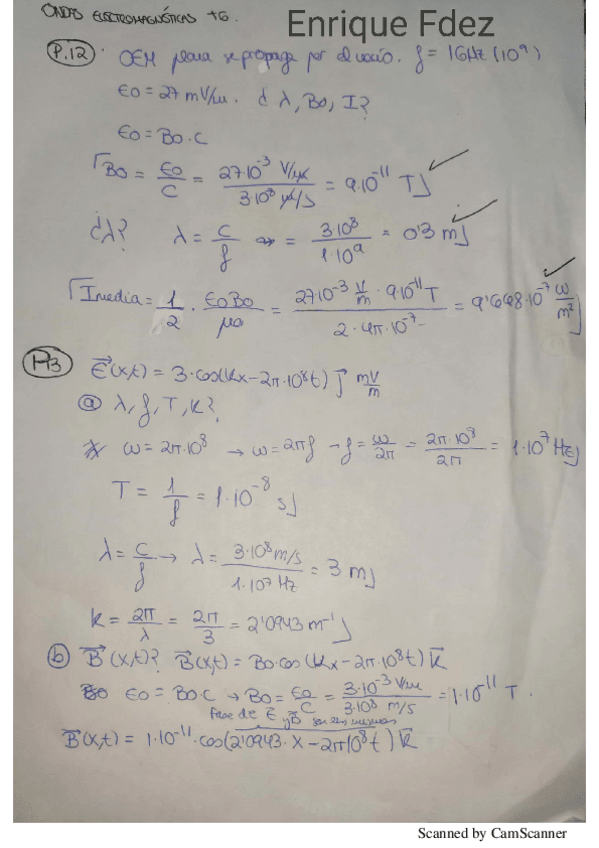 ONDAS ELECTROMAGNÉTICAS T6.
Enrique Fdez
P.12 OEM plana se propaga por el vacío. f = 1GHz (10⁹)
E0 = 27 mV/m. ¿ λ, B0, I?
E0 = B0·C
B0 = E0/C = 27·10⁻³ V/m / 3·10⁸ m/s = 9·10⁻¹¹ T
¿λ? λ = C/f = 3·10⁸/1·10⁹ = 0'3 m
Imedia = 1/2 · E0B0/μ0 = 27·10⁻³ V/m · 9·10⁻¹¹ T / 2·4π·10⁻⁷ = 9'668·10⁻⁷ W/m²
E⃗(x,t) = 3·cos(kx-2π·10⁸t) j⃗ mV/m
ⓐ λ, f, T, k?
ω = 2π·10⁸ → ω = 2πf → f = ω/2π = 2π·10⁸/2π = 1·10⁷ Hz
T = 1/f = 1·10⁻⁸ s
λ = C/f → λ = 3·10⁸ m/s / 1·10⁷ Hz = 3 m
k = 2π/λ = 2π/3 = 2'0943 m⁻¹
ⓑ B⃗(x,t)? B⃗(x,t) = B0·cos(kx-2π·10⁸t) k⃗
E0 = B0·C → B0 = E0/C = 3·10⁻³ V/m / 3·10⁸ m/s = 1·10⁻¹¹ T.
fase de E⃗ y B⃗ son las mismas
B⃗(x,t) = 1·10⁻¹¹·cos(2'0943·x-2π10⁸t) k⃗
Scanned by CamScanner